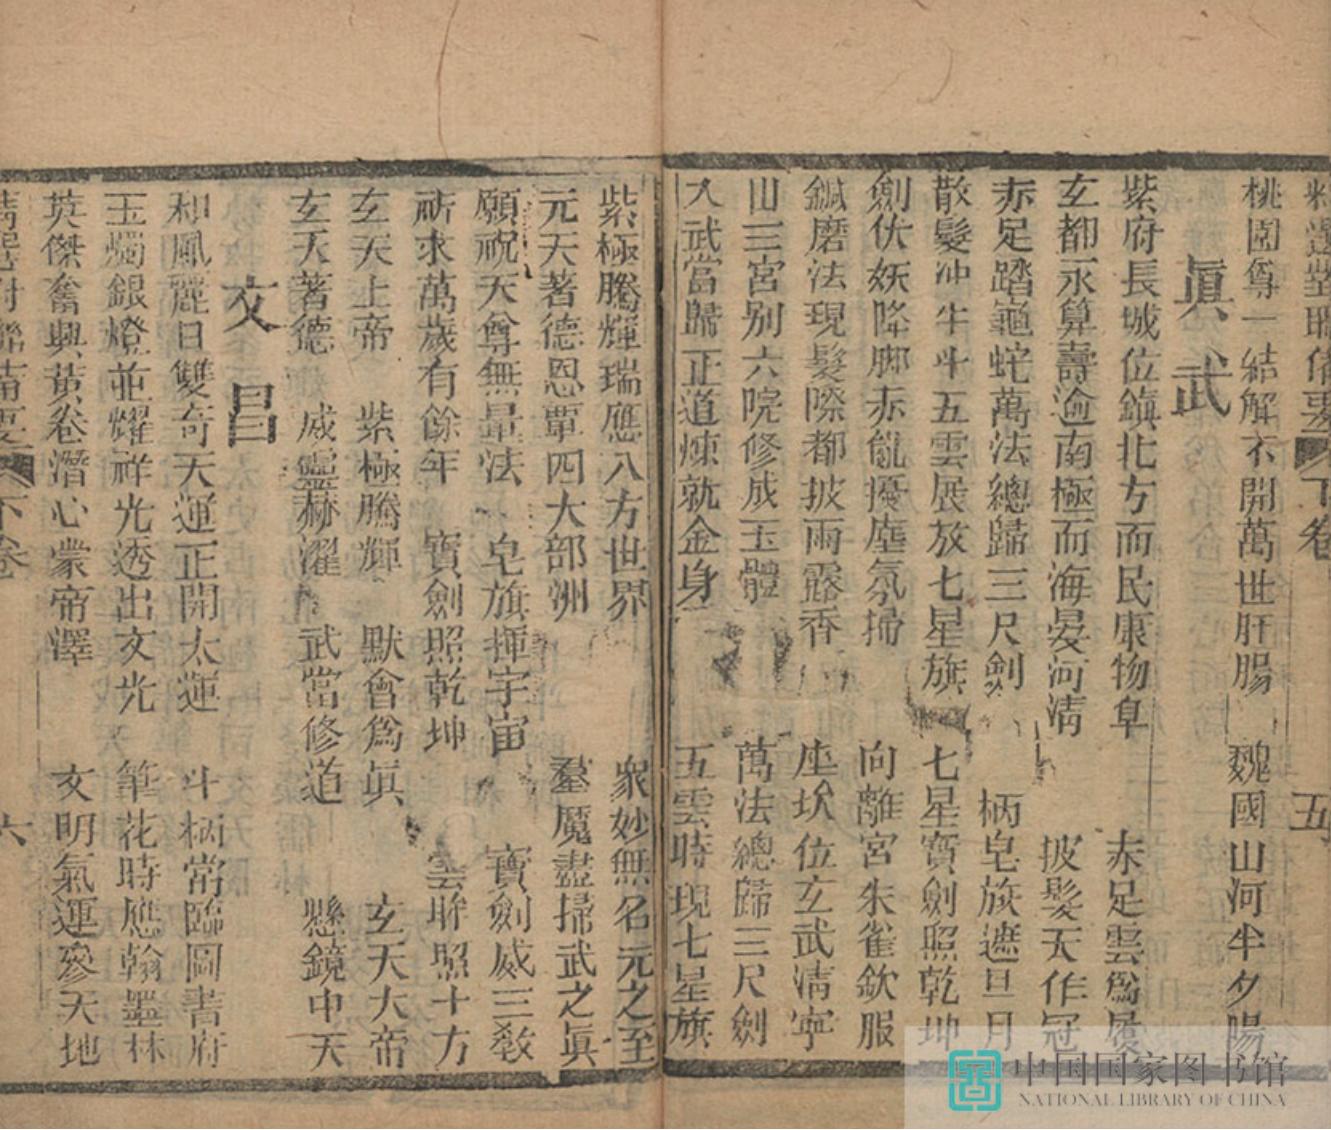 精選對聯備要 下卷 五
桃園尊一結解不開萬世肝腸 魏國山河半夕陽
眞武
紫府長城位鎮北方而民康物阜 赤足雲爲履
玄都永算壽逾南極而海晏河清 披髮天作冠
赤足踏龜蛇萬法總歸三尺劍 柄皂旗遮日月
散髮冲牛斗五雲展放七星旗 七星寶劍照乾坤
劍伏妖降脚赤能擾塵氛掃 向離宮朱雀欽服
鍼磨法現髮際都披雨露香 座坎位玄武清寧
山三宮別六院修成玉體 萬法總歸三尺劍
入武當歸正道煉就金身 五雲時現七星旗
紫極騰輝瑞應八方世界 衆妙無名元之至
元天著德恩覃四大部洲 羣魔盡掃武之眞
願祝天尊無量法 皂旗揮宇宙 寶劍威三教
祈求萬歲有餘年 寶劍照乾坤 雲眸照十方
玄天上帝 紫極騰輝 默會爲眞 玄天大帝
玄天著德 威靈赫濯 武當修道 懸鏡中天
文昌
和風麗日雙奇天運正開太運 斗柄常臨圖書府
玉燭銀燈並耀祥光透出文光 筆花時應翰墨林
英傑奮興黃卷潛心蒙帝澤 文明氣運參天地
精選對聯備要 下卷 六